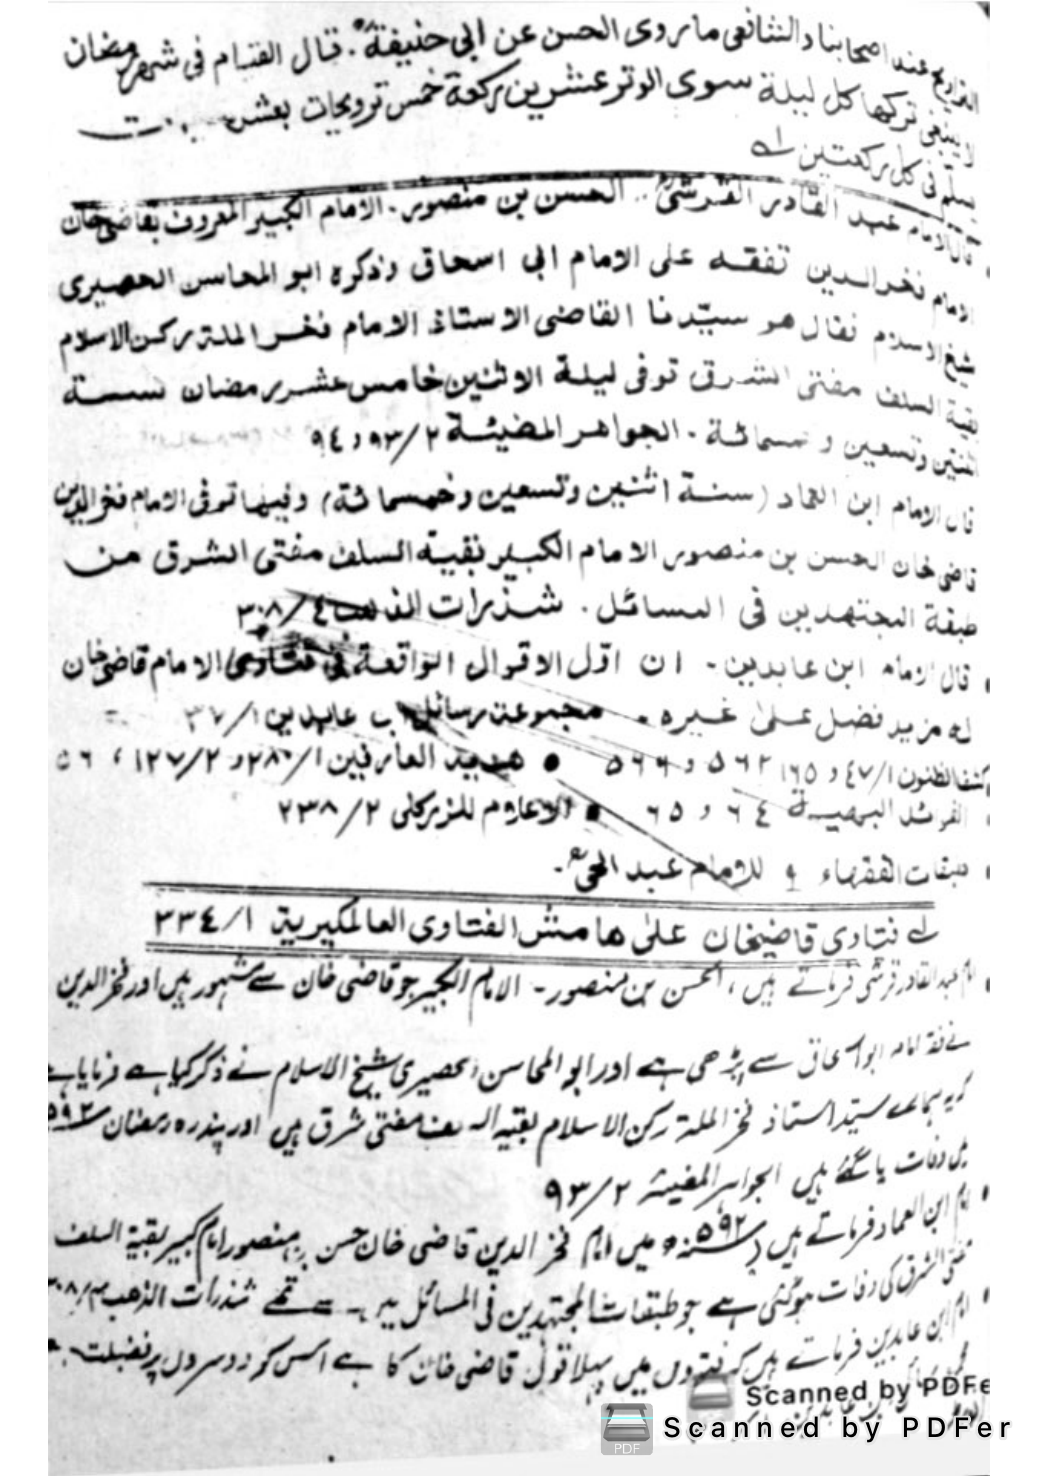 التراويح عند اصحابنا والشافعي ما روى الحسن عن ابي حنيفة. قال القيام في شهر رمضان
لا ينبغي تركها كل ليلة سوى الوتر عشرين ركعة خمس ترويحات بعشر
يسلم في كل ركعتين لے
قال الامام عبد القادر القرشي .. الحسن بن منصور. الامام الكبير المعروف بقاضي خان
الامام فخر الدين تفقه على الامام ابي اسحاق وذكره ابو المحاسن الحصيري
شيخ الاسلام فقال هو سيدنا القاضي الاستاذ الامام فخر الملة ركن الاسلام
بقية السلف مفتى الشرق توفى ليلة الاثنين خامس عشر رمضان سنة
اثنتين وتسعين و خمسمائة. الجواهر المضيئة ٢/ ٩٣ و ٩٤
قال الامام ابن العماد (سنة اثنين وتسعين وخمسمائة) وفيها توفى الامام فخر الدين
قاضى خان الحسن بن منصور الامام الكبير بقية السلف مفتى الشرق من
طبقة المجتهدين فى المسائل. شذرات الذهب ٤/ ٣٠٨
قال الامام ابن عابدين - ان اوّل الاقوال الواقعة في فتاوى الامام قاضي خان
له مزيد فضل على غيره . مجموعة رسائل ابن عابدين ١/ ٣٧
كشف الظنون ١/ ٤٧ و ١٦٥ ٥٦٢ و ٥٦٩ • هدية العارفين ١/ ٢٨٠ و ٢/ ١٢٧، ٥٦
الفوائد البهية ٦٤ و ٦٥ • الاعلام للزركلى ٢/ ٢٣٨
طبقات الفقهاء للامام عبد الحيؒ.
لے فتاوى قاضيخان على هامش الفتاوى العالمكيرية ١/ ٣٣٤
امام عبد القادر قرشی فرماتے ہیں، الحسن بن منصور - الامام الکبیر جو قاضی خان سے مشہور ہیں اور فخر الدین
نے فقہ امام ابو اسحاق سے پڑھی ہے اور ابو المحاسن الحصیری شیخ الاسلام نے ذکر کیا ہے فرمایا ہے
کہ یہ ہمارے سید استاذ فخر الملۃ رکن الاسلام بقیۃ السلف مفتی شرق ہیں اور پندرہ رمضان ٥٩٢
میں وفات پا گئے ہیں الجواہر المضیئہ ٢/ ٩٣
امام ابن العماد فرماتے ہیں (سنہ ٥٩٢) میں امام فخر الدین قاضی خان حسن بن منصور امام کبیر بقیۃ السلف
مفتی الشرق کی وفات ہوگئی ہے جو طبقات المجتہدین فی المسائل میں سے تھے شذرات الذهب ٤/ ٣٠٨
امام ابن عابدین فرماتے ہیں کہ فتووں میں پہلا قول قاضی خان کا ہے اس کو دوسروں پر فضیلت
Scanned by PDFe
Scanned by PDFer
PDF